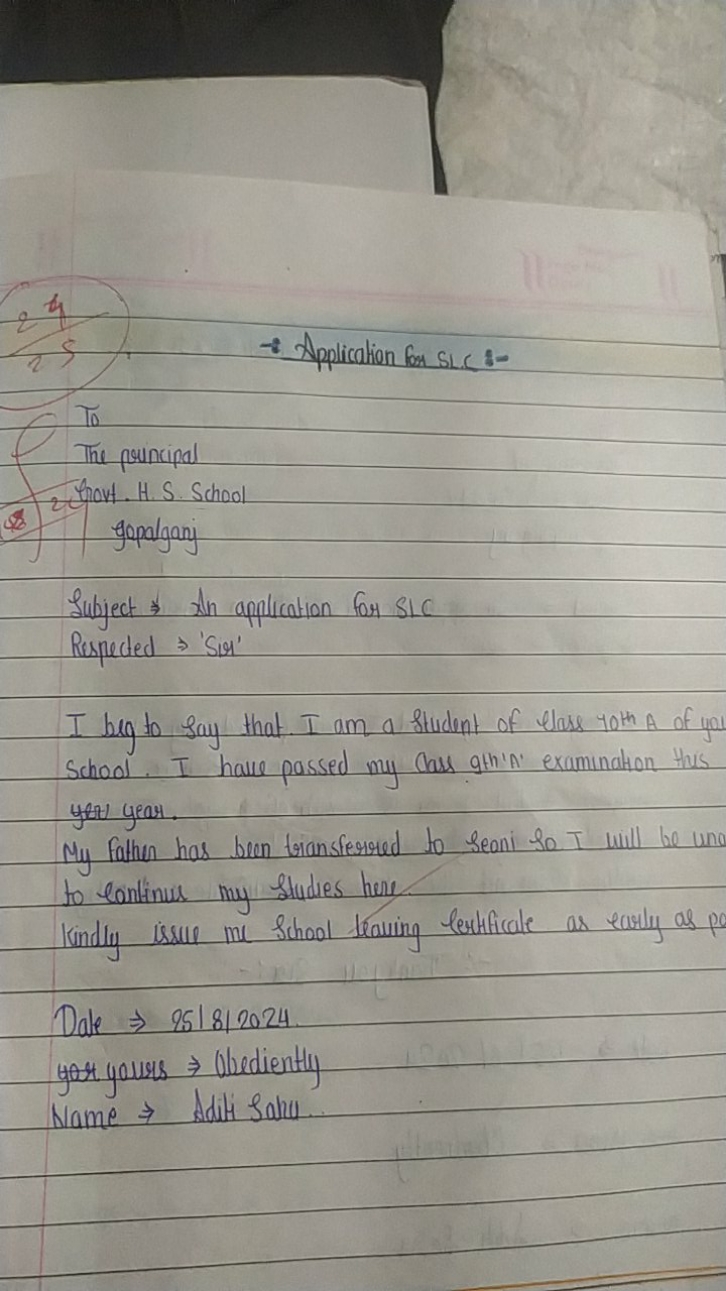 24
25
-: Application for SLC :-
To
The principal
Govt. H. S. School
Gopalganj
Subject → An application for SLC
Respected → 'Sir'
I beg to say that I am a student of class 10th A of you
School. I have passed my Class 9th 'A' examination this
year.
My Father has been transferred to Seoni So I will be una
to continue my Studies here
Kindly issue me School leaving Certificate as early as po
Date → 25/8/2024
yours → Obediently
Name → Aditi Sahu